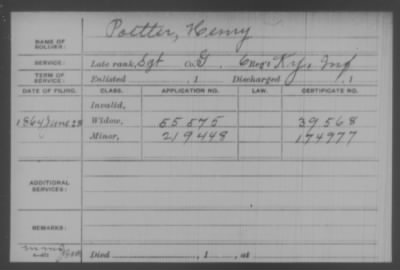 NAME OF SOLDIER: Poetter, Henry
SERVICE: Late rank, Sgt Co. G, 6 Reg't Ky. Inf
TERM OF SERVICE: Enlisted , 1 Discharged , 1
DATE OF FILING. CLASS. APPLICATION NO. LAW. CERTIFICATE NO.
Invalid,
1864 June 28 Widow, 55575 39568
Minor, 219448 174977
ADDITIONAL SERVICES:
REMARKS:
Died , 1 , at